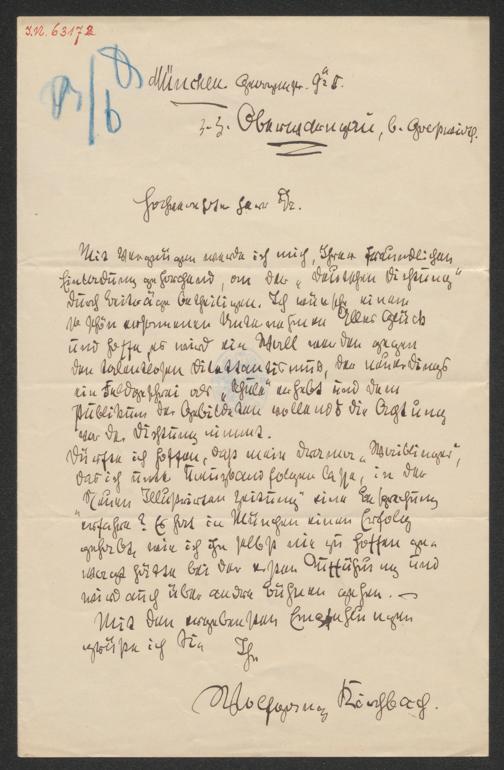 I.N. 63172
München
z. Z. Oberammergau, b.
Hochverehrter Herr Dr.
Mit Vergnügen werde ich mich, Ihrer freundlichen
Einladung gehorchend, an der „Deutschen Dichtung"
durch Beiträge betheiligen. Ich wünsche einem
so schön ersonnenen Unternehmen alles Glück
und hoffe, es wird ein Wall werden gegen
den talentlosen Dilettantismus, der neuerdings
ein Feldgeschrei als „Schule" erhebt und dem
Publikum der Gebildeten vollends die Achtung
vor der Dichtung nimmt.
Dürfte ich hoffen, daß mein Drama „Waiblinger",
das ich unter Kreuzband folgen lasse, in der
„Neuen Illustrirten Zeitung" eine Besprechung
erfahre? Es hat in München einen Erfolg
gehabt, wie ich ihn selbst nie zu hoffen ge-
wagt hätte bei der ersten Aufführung und
wird auch über andre Bühnen gehen. —
Mit den ergebensten Empfehlungen
grüße ich Sie Ihr
Wolfgang Kirchbach.